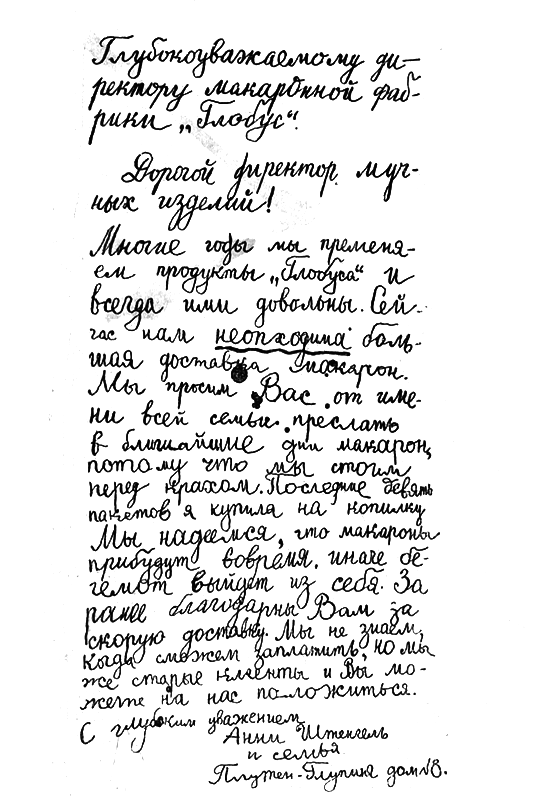 Глубокоуважаемому ди-
ректору макаронной фаб-
рики „Глобус“.
Дорогой директор муч-
ных изделий!
Многие годы мы применя-
ем продукты „Глобуса“ и
всегда ими довольны. Сей-
час нам неопходима боль-
шая доставка макарон.
Мы просим Вас от име-
ни всей семьи преслать
в ближайшие дни макарон,
потому что мы стоим
перед крахом. Последние девять
пакетов я купила на копилку
Мы надеемся, что макароны
прибудут вовремя, иначе бе-
гемот выйдет из себя. За
ранее благодарны Вам за
скорую доставку. Мы не знаем,
когда сможем заплатить, но мы
же старые клиенты и Вы мо-
жете на нас положиться.
С глубоким уважением
Анни Штенгель
и семья
дом №8.